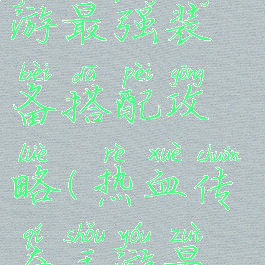 游最强装
bèi dā pèi gōng
备搭配攻
lüè rè xuè chuán
略(热血传
qí shǒu yóu zuì
奇手游最